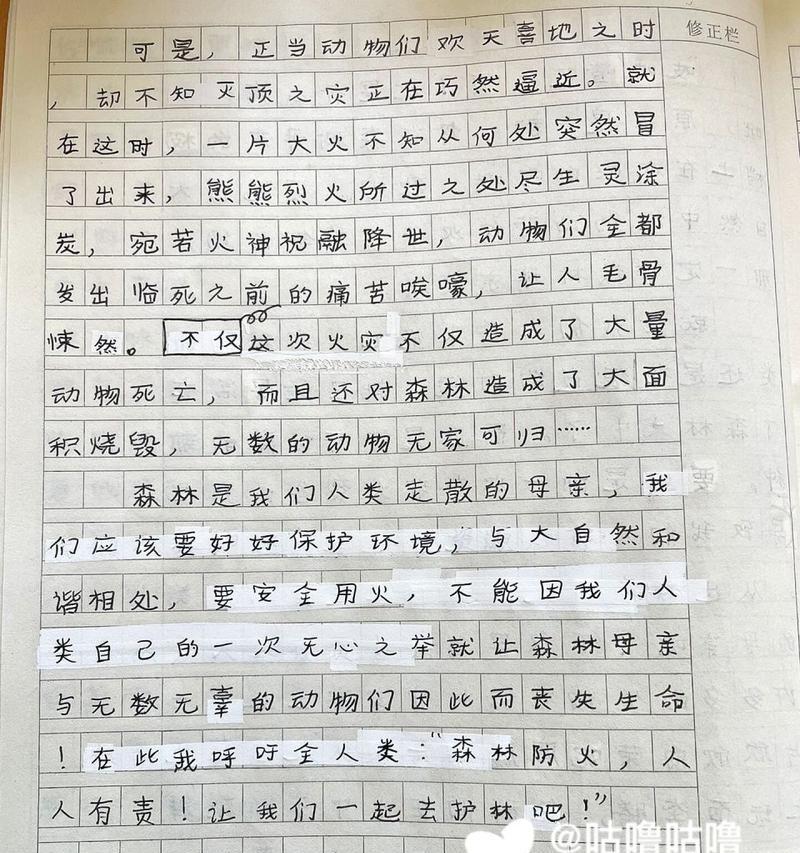 可是，正当动物们欢天喜地之时 修正栏
，却不知灭顶之灾正在巧然逼近。就
在这时，一片大火不知从何处突然冒
了出来，熊熊烈火所过之处尽生灵涂
炭，宛若火神祝融降世，动物们全都
发出临死之前的痛苦唉嚎，让人毛骨
悚然。不仅这次火灾不仅造成了大量
动物死亡，而且还对森林造成了大面
积烧毁，无数的动物无家可归……
森林是我们人类走散的母亲，我
们应该要好好保护环境，与大自然和
谐相处，要安全用火，不能因我们人
类自己的一次无心之举就让森林母亲
与无数无辜的动物们因此而丧失生命
！在此我呼吁全人类：“森林防火，人
人有责！让我们一起去护林吧！”
@咕噜咕噜